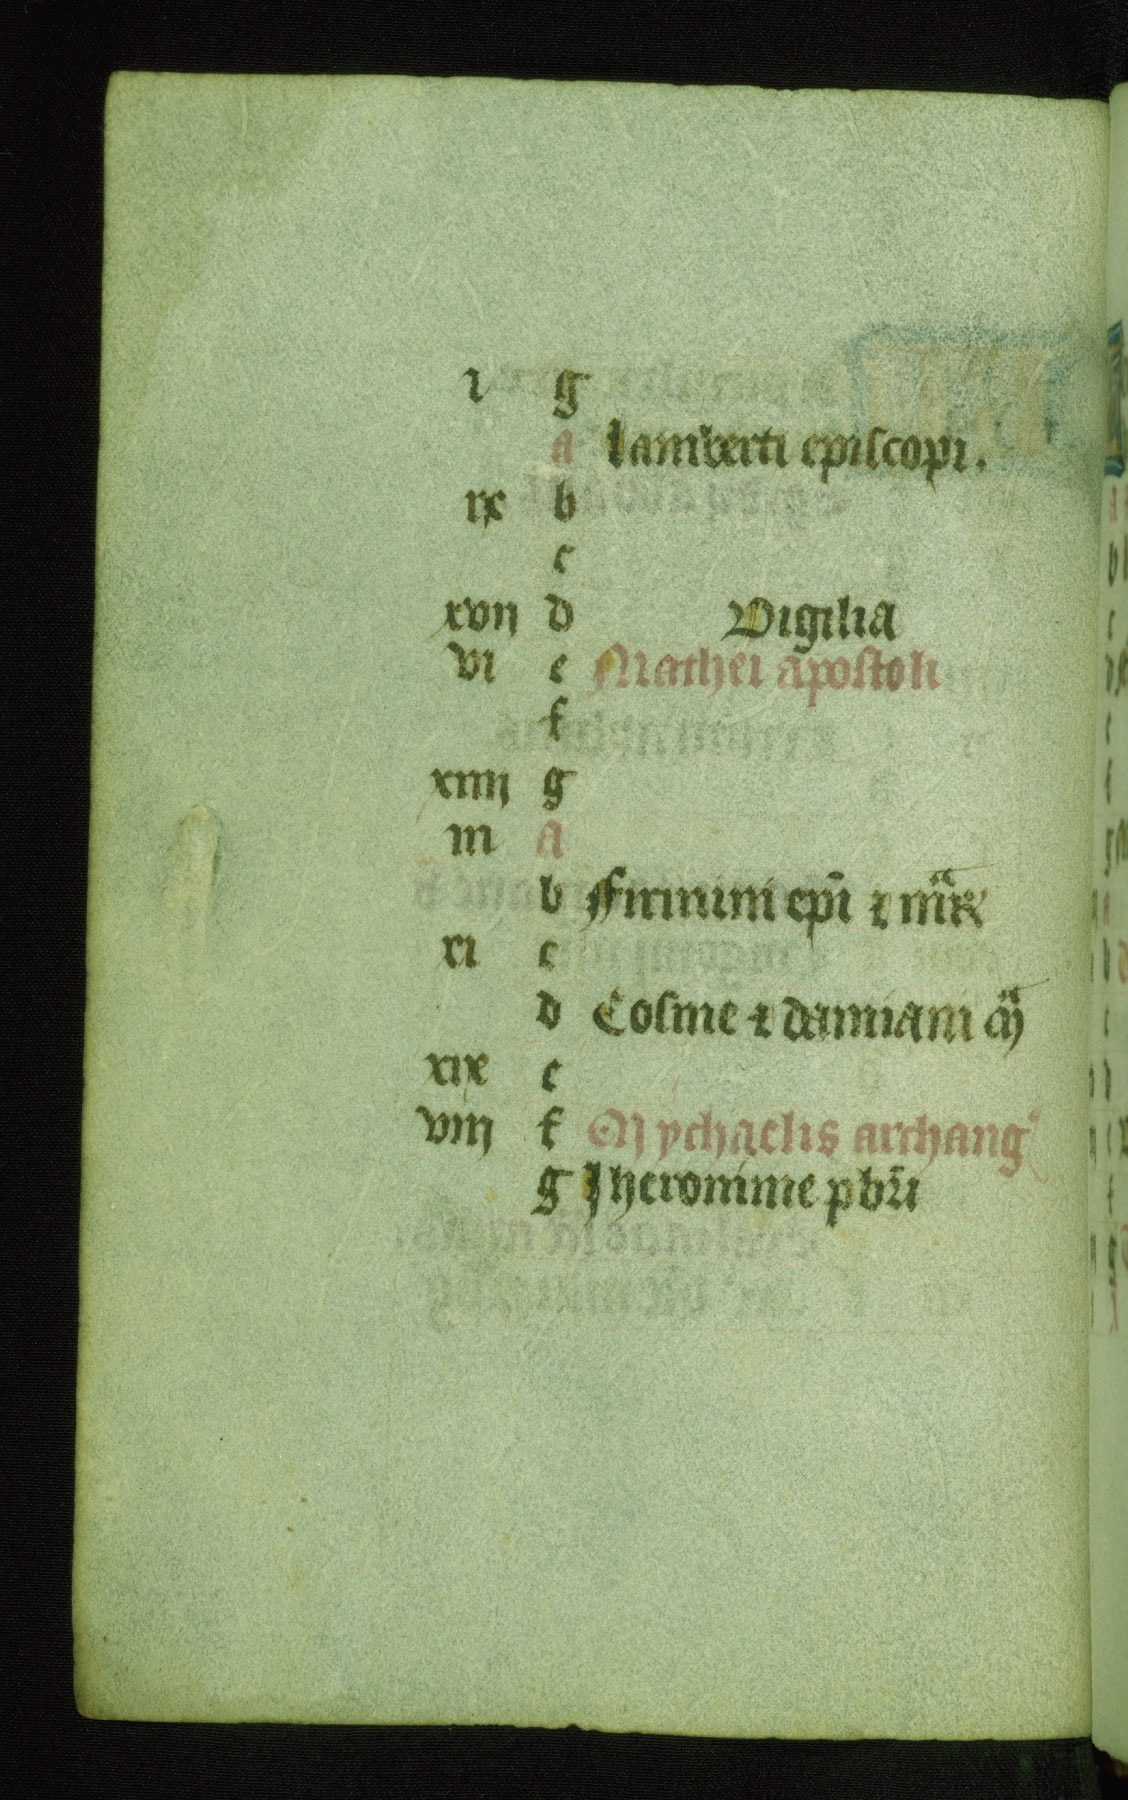 i g
a lamberti episcopi.
ix b
c
xvij d Vigilia
vi e Mathei apostoli
f
xiiij g
iii a
b Firmini ep̄i ⁊ mr̄is
xi c
d Cosme ⁊ damiani m̄
xix e
viij f Mychaelis archang
g Jheronime pbr̄i